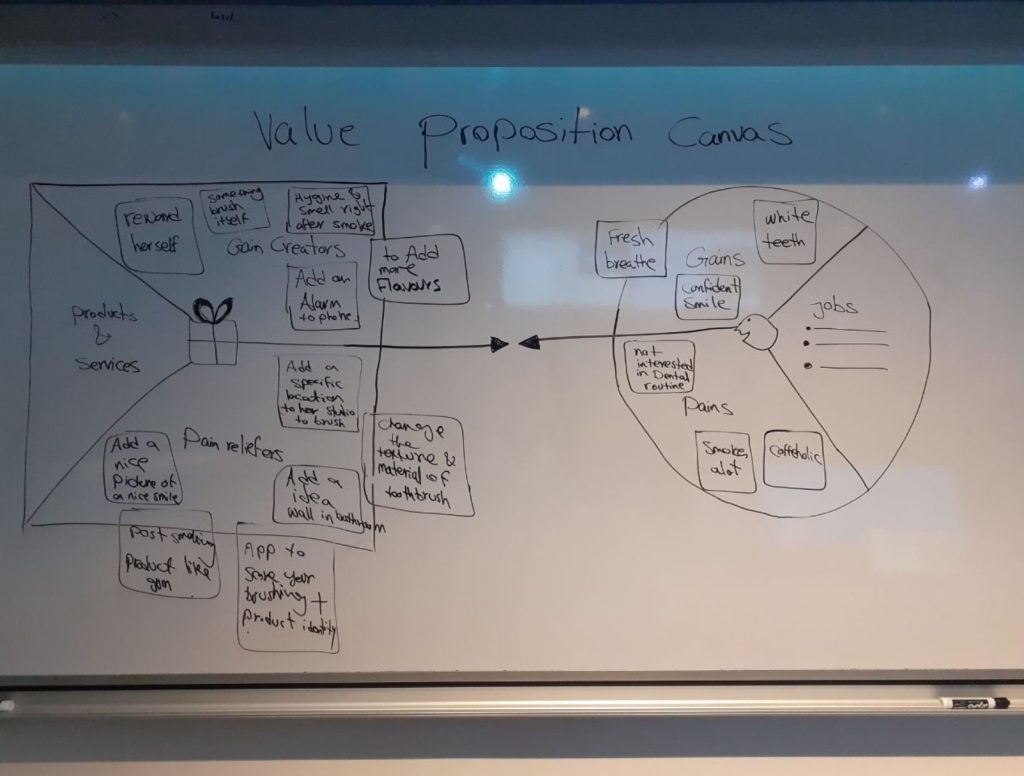 Value Proposition Canvas
reward
herself
something
brush
itself
Hygine &
smell right
after smoke
Gain Creators
to Add
more
Flavours
Add an
Alarm
to phone
Products
&
Services
Add a
specific
location
to her studio
to brush
Pain reliefers
Add a
nice
Picture of
a nice smile
Add a
idea
wall in bathroom
change
the
texture &
material of
toothbrush
Post smoking
Product like
gum
App to
your
brushing +
product identity
Fresh
breathe
Gains
white
teeth
confident
smile
jobs
not
interested
in Dental
routine
Pains
Smokes
alot
Coffeholic